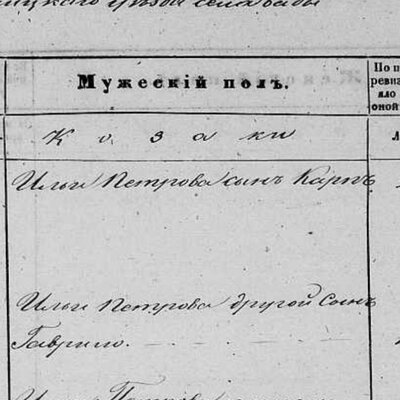 уѣзда села бабы
Мужескій полъ.
По п
ревиз
яло
оной
К о з а ки
Л
Ильи Петрова сынъ Карпъ
Ильи Петрова другой сынъ
Гаврило.
Петрова